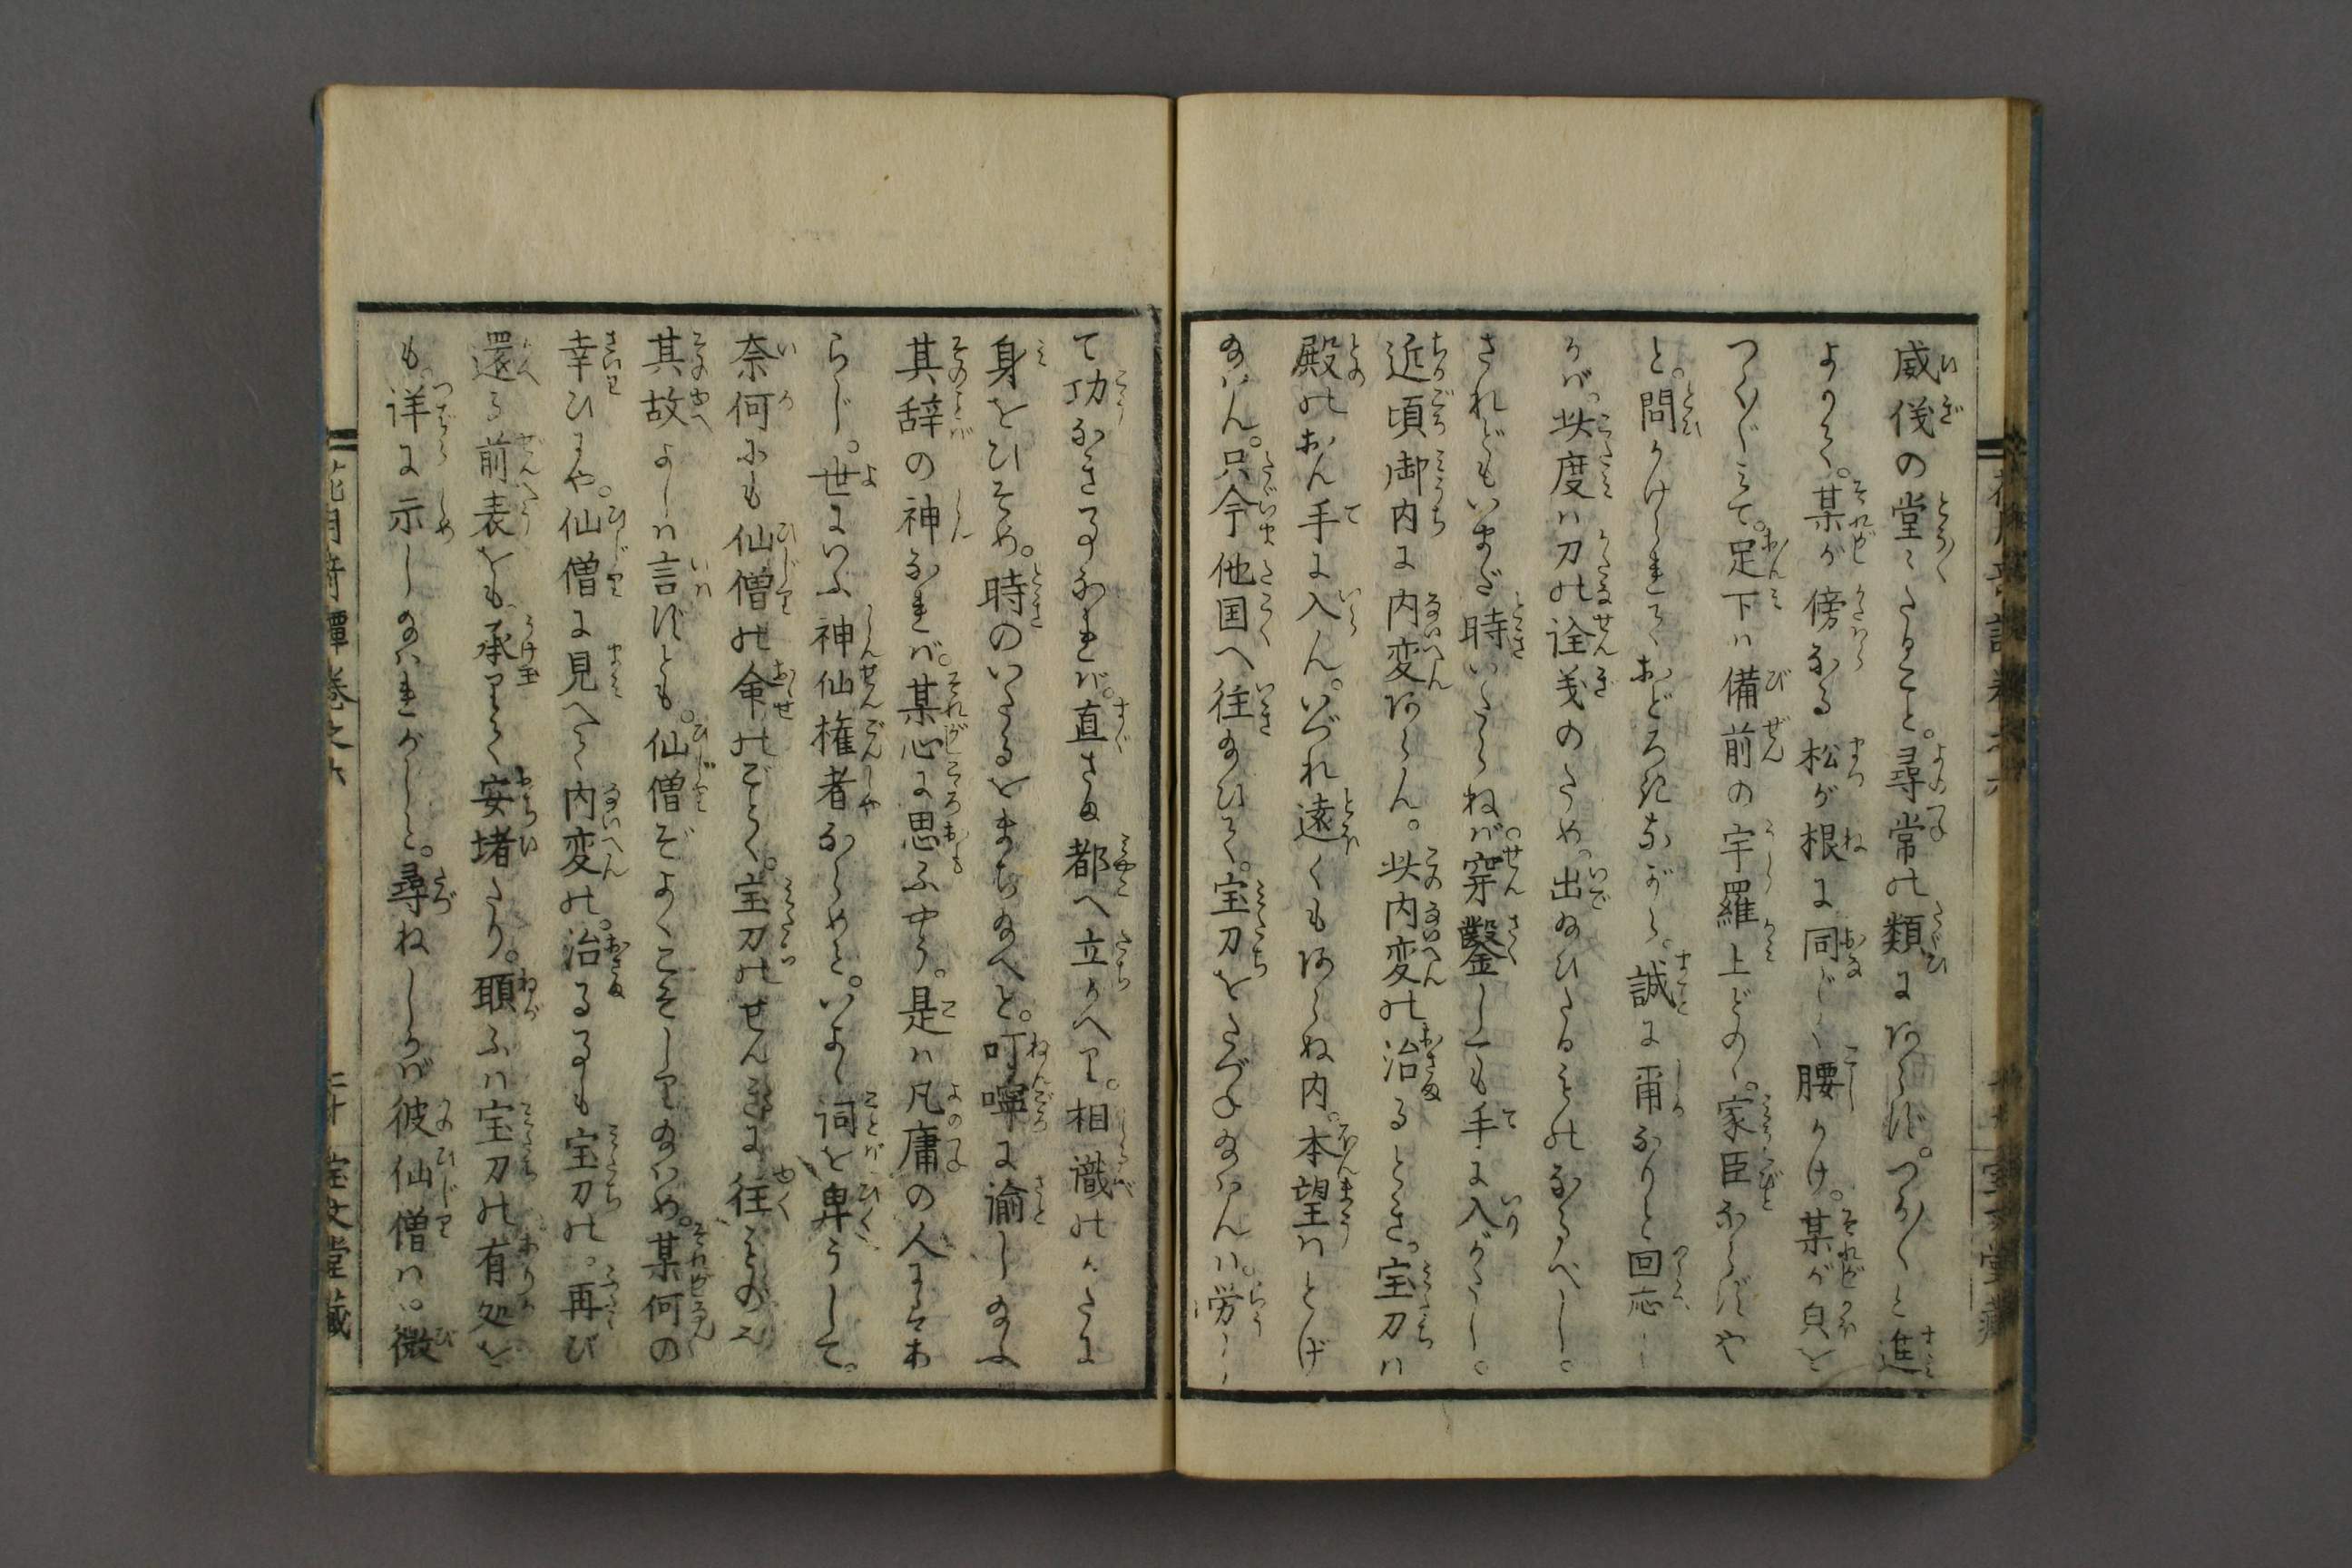 威儀の堂〻たること。尋常の類にあらず。つか〳〵と進み
よりて。某が傍なる松が根に同じく腰かけ。某が㒵を
つく〴〵みて。足下は備前の宇羅上どのゝ。家臣ならずや
と。問かけられておどろきながら。誠に爾なりと回応し
かば。此度は刀の詮義のため。出給ひたることのなるべし。
されどもいまだ時いたらねば。穿鑿しても手に入がたし。
近頃御内に内変あらん。此内変の治るとき。宝刀は
殿のおん手に入ん。いづれ遠くもあらぬ内。本望はとげ
給はん。只今他国へ往給ひて。宝刀をたづね給はんは。労し
て功なき事なれば。直さま都へ立かへり。相識のかたに
身をひそめ。時のいたるをまち給へと。叮嚀に諭し給ふ
其辞の神なれば。某心に思ふやう。是は凡庸の人にはあ
らじ。世にいふ神仙権者ならめと。いよ〳〵詞を卑うして。
奈何にも仙僧の命のごとく。宝刀のせんぎに往ものゝ
其故よしは言ずとも。仙僧ぞよくこそしり給はめ。某何の
幸ひにや。仙僧に見へて内変の。治る事も宝刀の。再び
還る前表をも。承りて安堵たり。願ふは宝刀の有処を
も。詳に示し給はれかしと。尋ねしかば彼仙僧は。微
花月奇譚巻之六
二十
宝文堂蔵